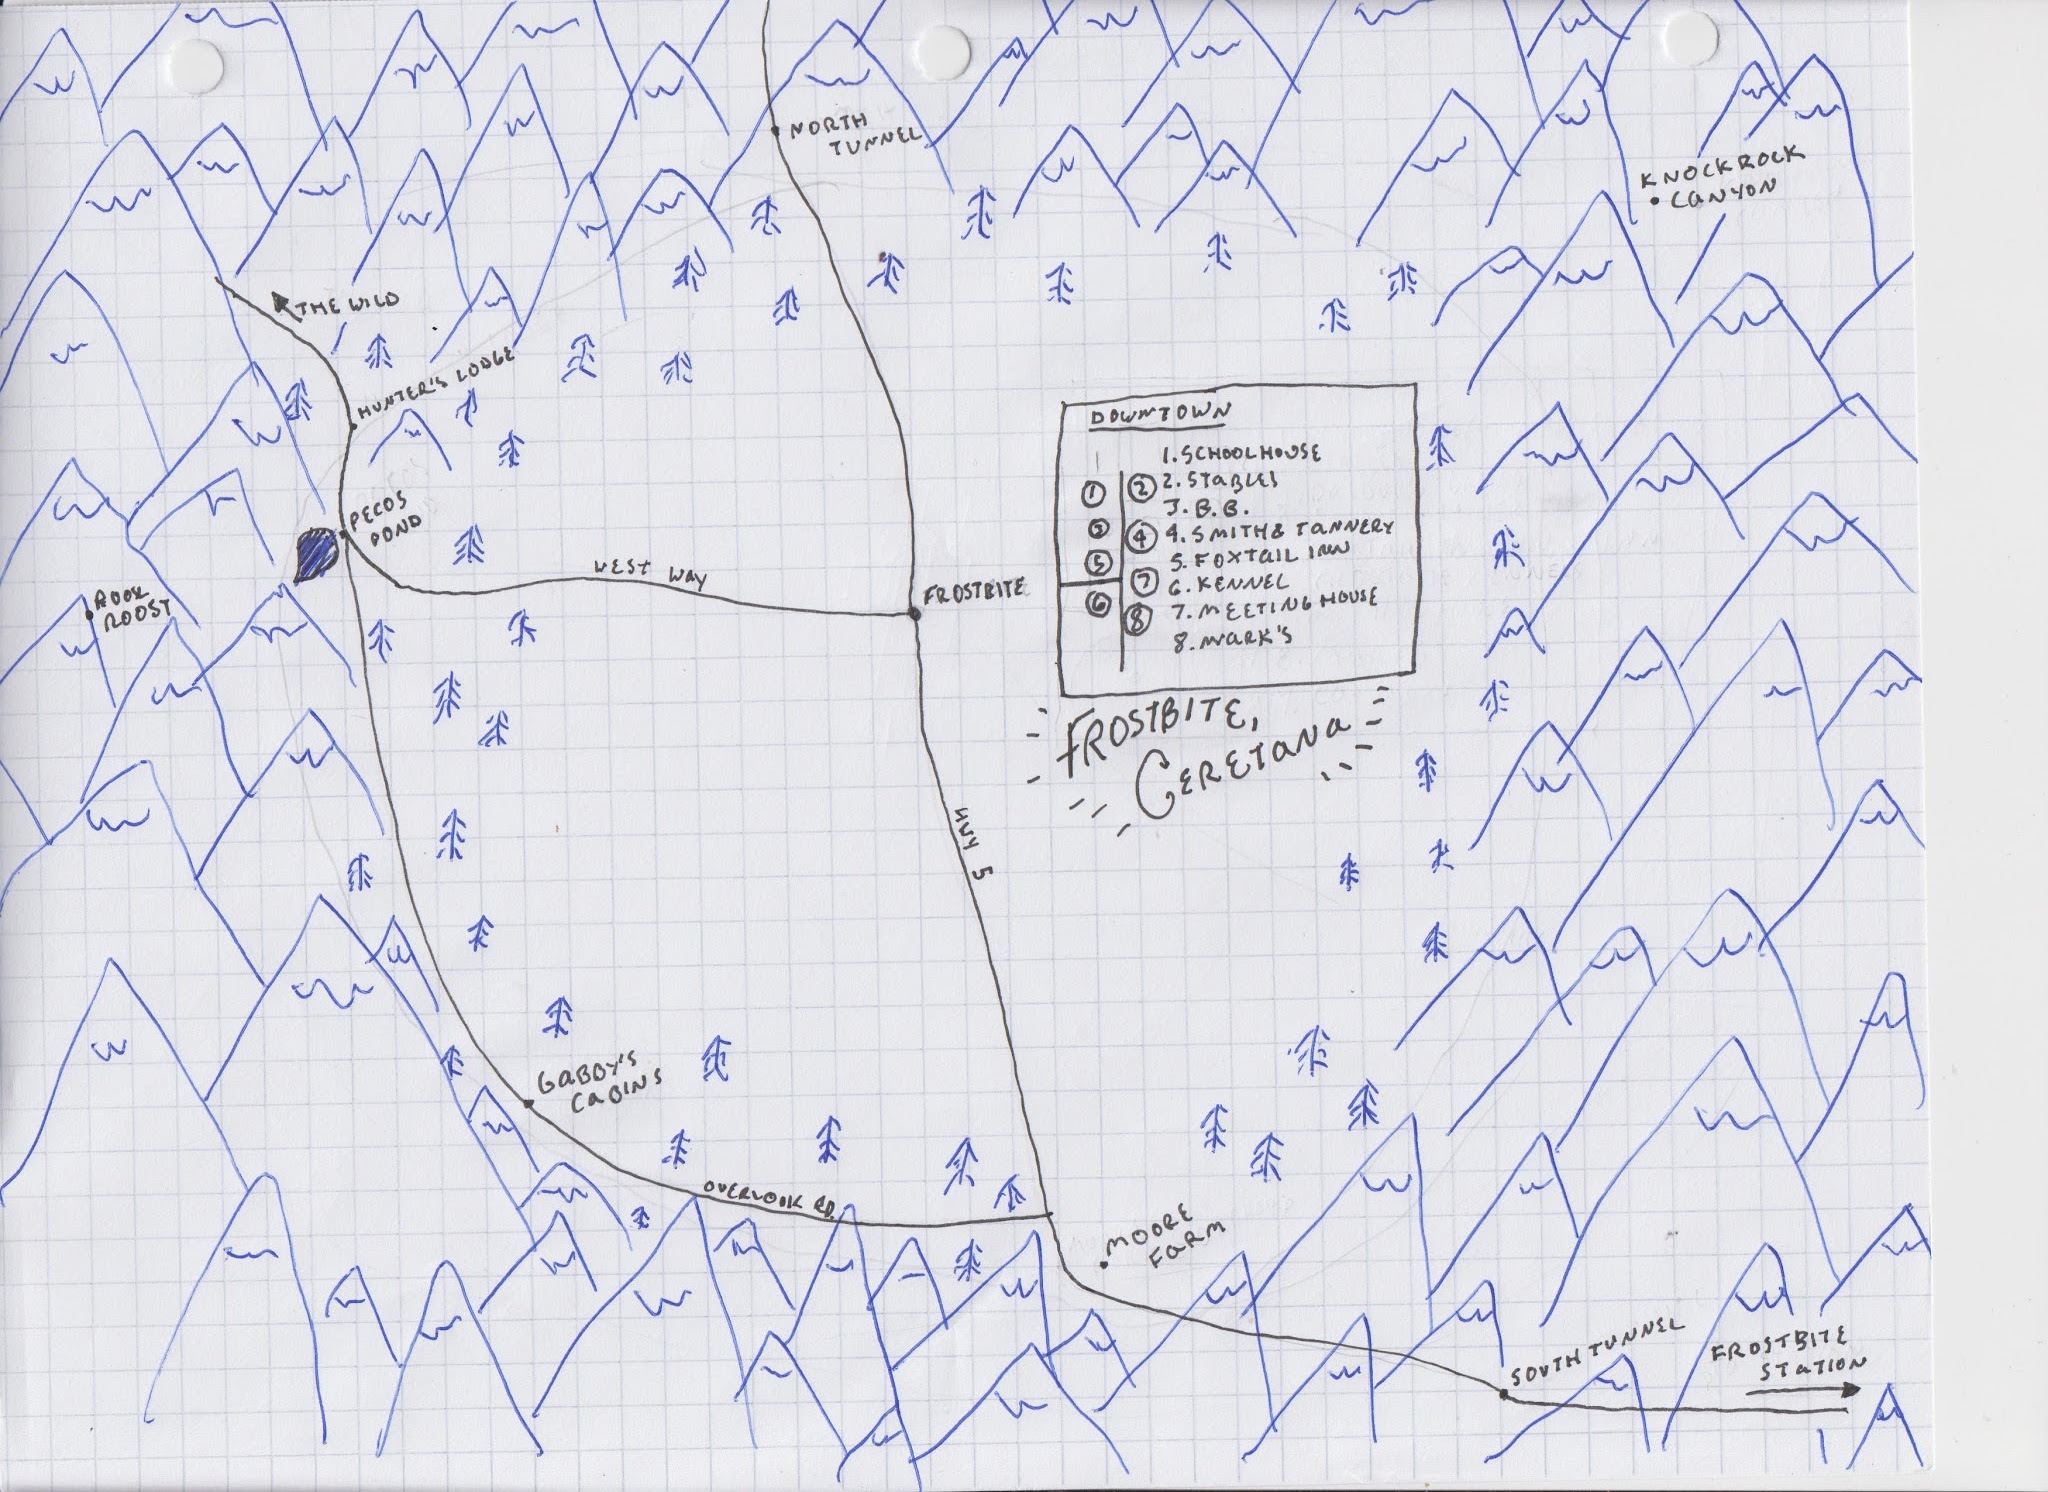 NORTH
TUNNEL
KNOCKROCK
CANYON
THE WILD
HUNTER'S LODGE
PECOS
POND
ROOK
ROOST
WEST WAY
FROSTBITE
DOWNTOWN
1. SCHOOLHOUSE
2. STABLES
3. B.B.
4. SMITH & TANNERY
5. FOXTAIL INN
6. KENNEL
7. MEETING HOUSE
8. MARK'S
1
2
3
4
5
7
6
8
FROSTBITE,
CERETANA
HWY 5
GABBY'S
CABINS
OVERLOOK RD.
MOORE
FARM
SOUTH TUNNEL
FROSTBITE
STATION